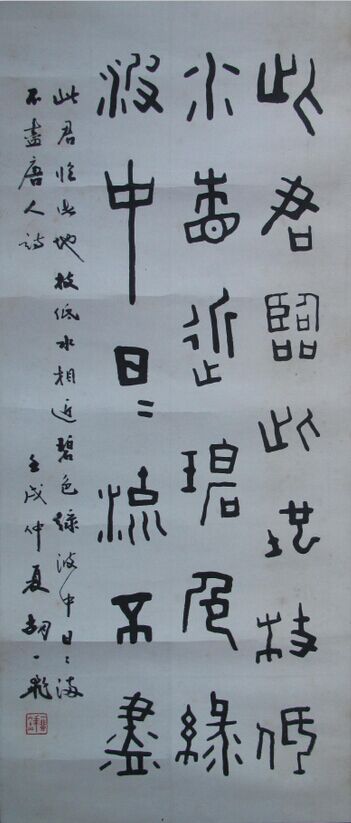 此君臨此地枝低
水相近碧色綠
波中日〻流不盡
此君臨此地枝低水相近碧色綠波中日〻流
不盡唐人詩
壬戌仲夏胡一飛